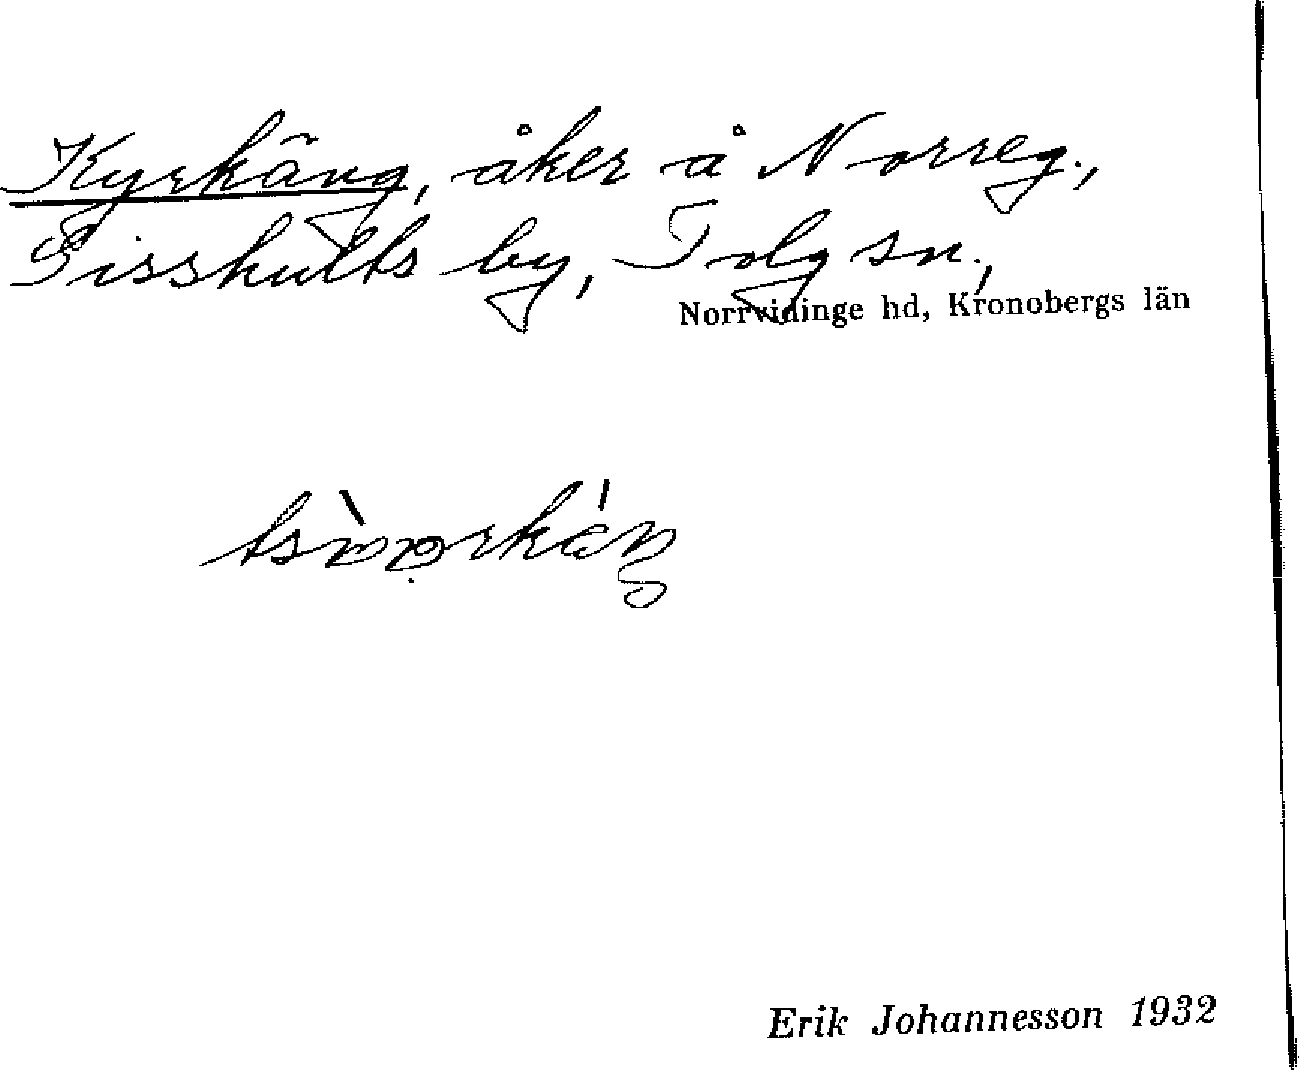 Kyrkäng, åker å Norreg.,
Gisshults by, Tolg sn.,
Norrvidinge hd, Kronobergs län
Erik Johannesson 1932